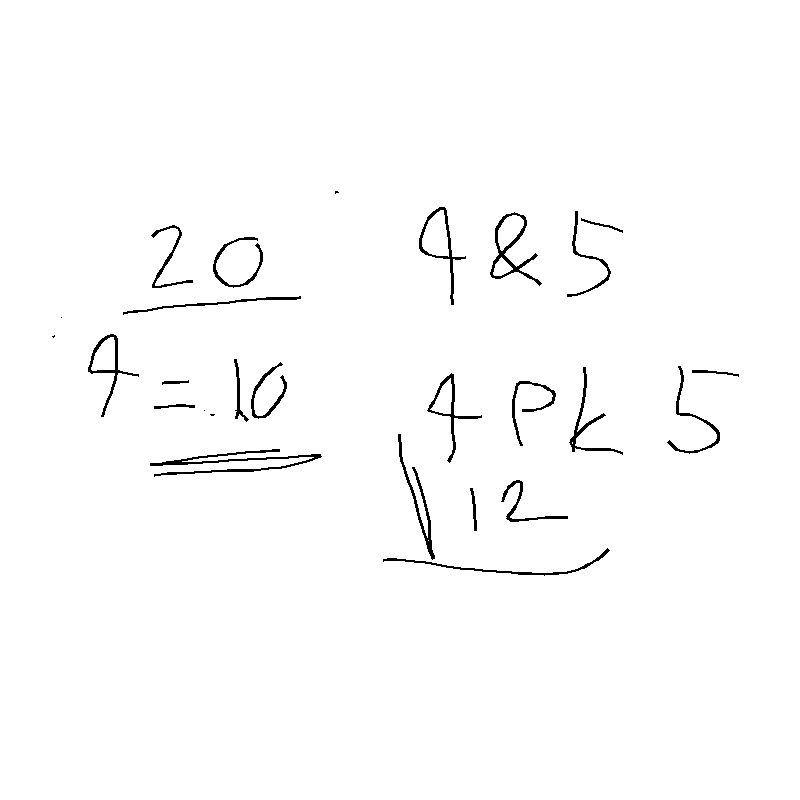 20
4 = .10
4 & 5
4 Pk 5
12